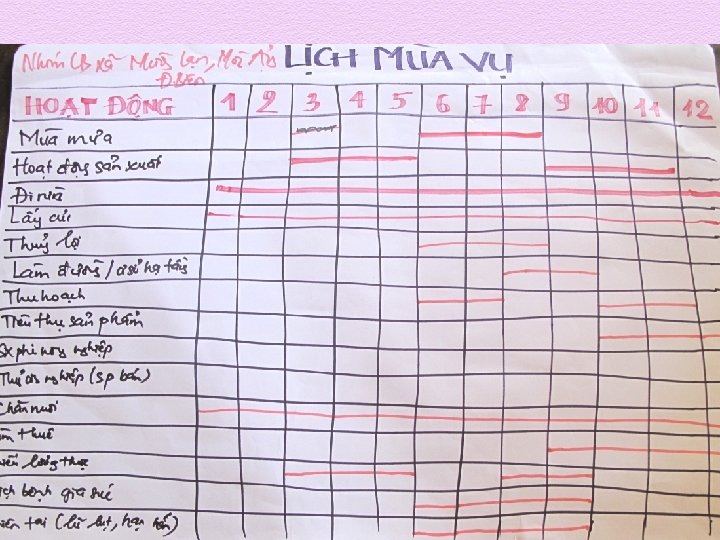 Nhóm CB xã Mường Lạn, Mường Ảng
Đ.Biên
LỊCH MÙA VỤ
HOẠT ĐỘNG 1 2 3 4 5 6 7 8 9 10 11 12
Mùa mưa
Hoạt động sản xuất
Đi
Lấy củi
Thuỷ lợi
Làm đường / cơ sở hạ tầng
Thu hoạch
Tiêu thụ sản phẩm
SX phi nông nghiệp
nghiệp (SP bán)
Chăn nuôi
thuê
lương thực
bệnh gia súc
tai (lũ lụt, hạn hán)